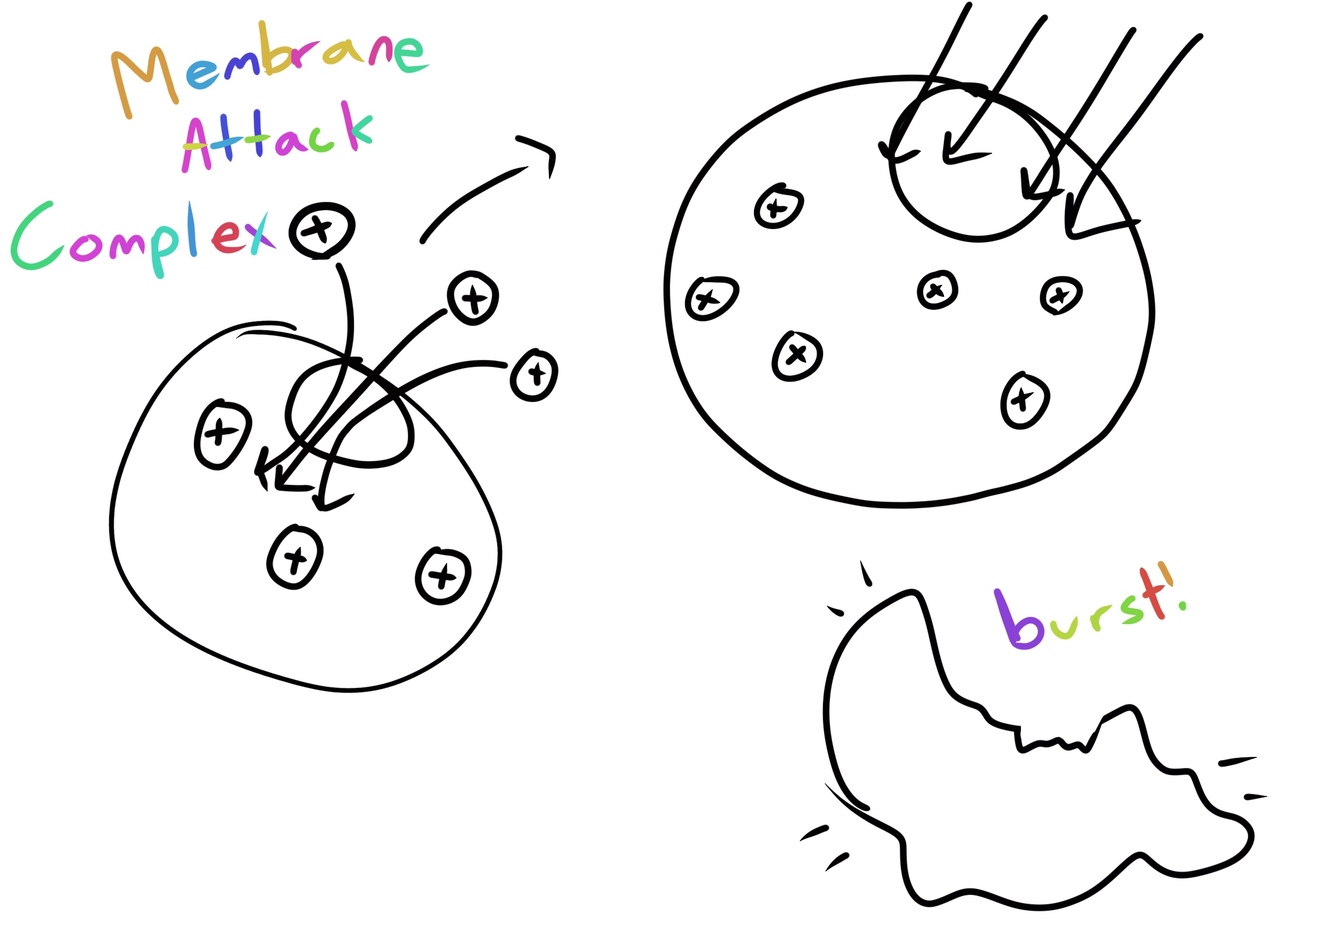 Membrane
Attack
Complex
+
+
+
+
+
+
+
+
+
+
+
+
burst!